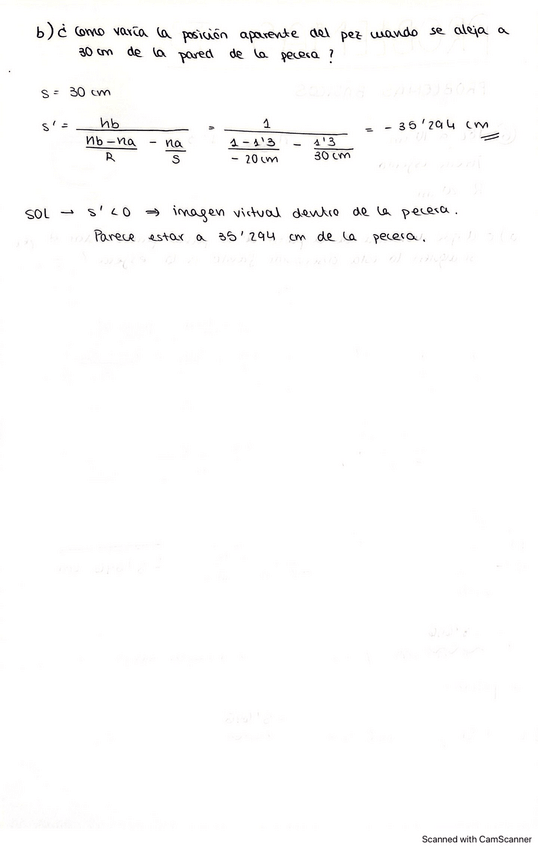 b) ¿ Como varía la posición aparente del pez cuando se aleja a
30 cm de la pared de la pecera ?
s = 30 cm
s' = nb / ((nb-na)/R - na/s) = 1 / ((1-1'3)/(-20cm) - 1'3/(30cm)) = - 35'294 cm
SOL → s' < 0 ⇒ imagen virtual dentro de la pecera.
Parece estar a 35'294 cm de la pecera.
Scanned with CamScanner